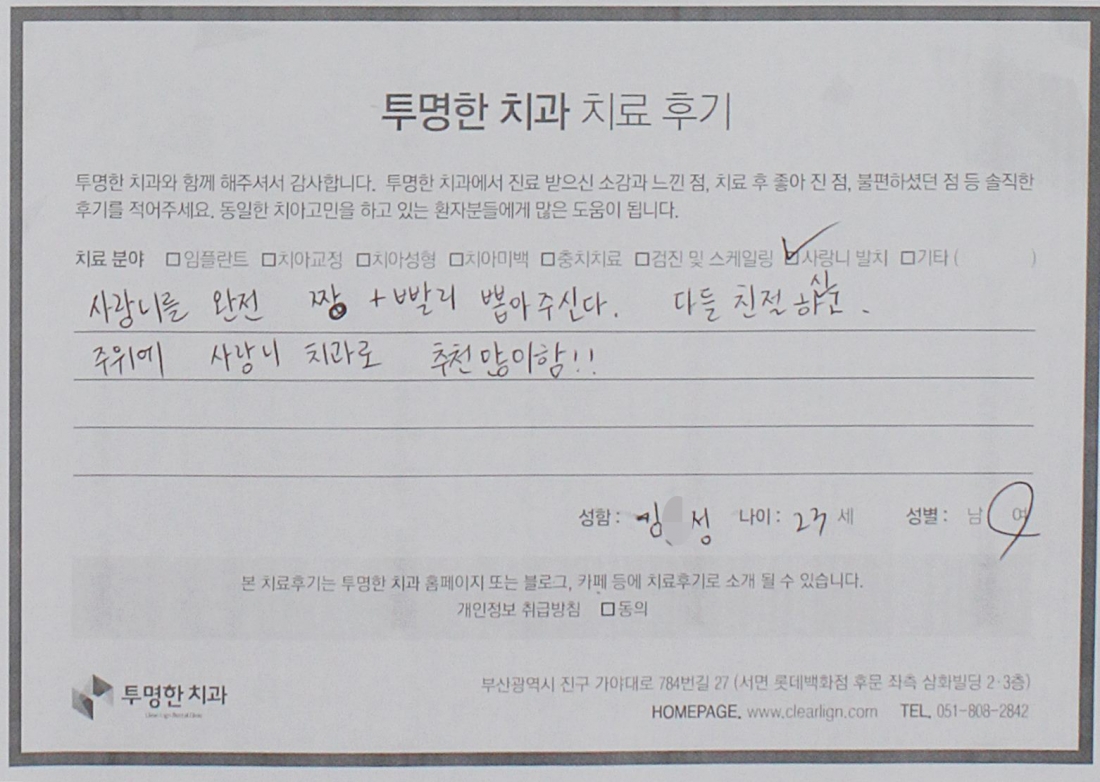 투명한 치과 치료 후기
투명한 치과와 함께 해주셔서 감사합니다. 투명한 치과에서 진료 받으신 소감과 느낀 점, 치료 후 좋아 진 점, 불편하셨던 점 등 솔직한
후기를 적어주세요. 동일한 치아고민을 하고 있는 환자분들에게 많은 도움이 됩니다.
치료 분야 □임플란트 □치아교정 □치아성형 □치아미백 □충치치료 □검진 및 스케일링 ☑사랑니 발치 □기타 ( )
사랑니를 완전 짱 + 빨리 뽑아주신다. 다들 친절하심.
주위에 사랑니 치과로 추천많이함!!
성함 : 김 성 나이 : 23 세 성별 : 남 여
본 치료후기는 투명한 치과 홈페이지 또는 블로그, 카페 등에 치료후기로 소개 될 수 있습니다.
개인정보 취급방침 □동의
투명한 치과
부산광역시 진구 가야대로 784번길 27 (서면 롯데백화점 후문 좌측 삼화빌딩 2·3층)
HOMEPAGE. www.clearlign.com TEL. 051-808-2842